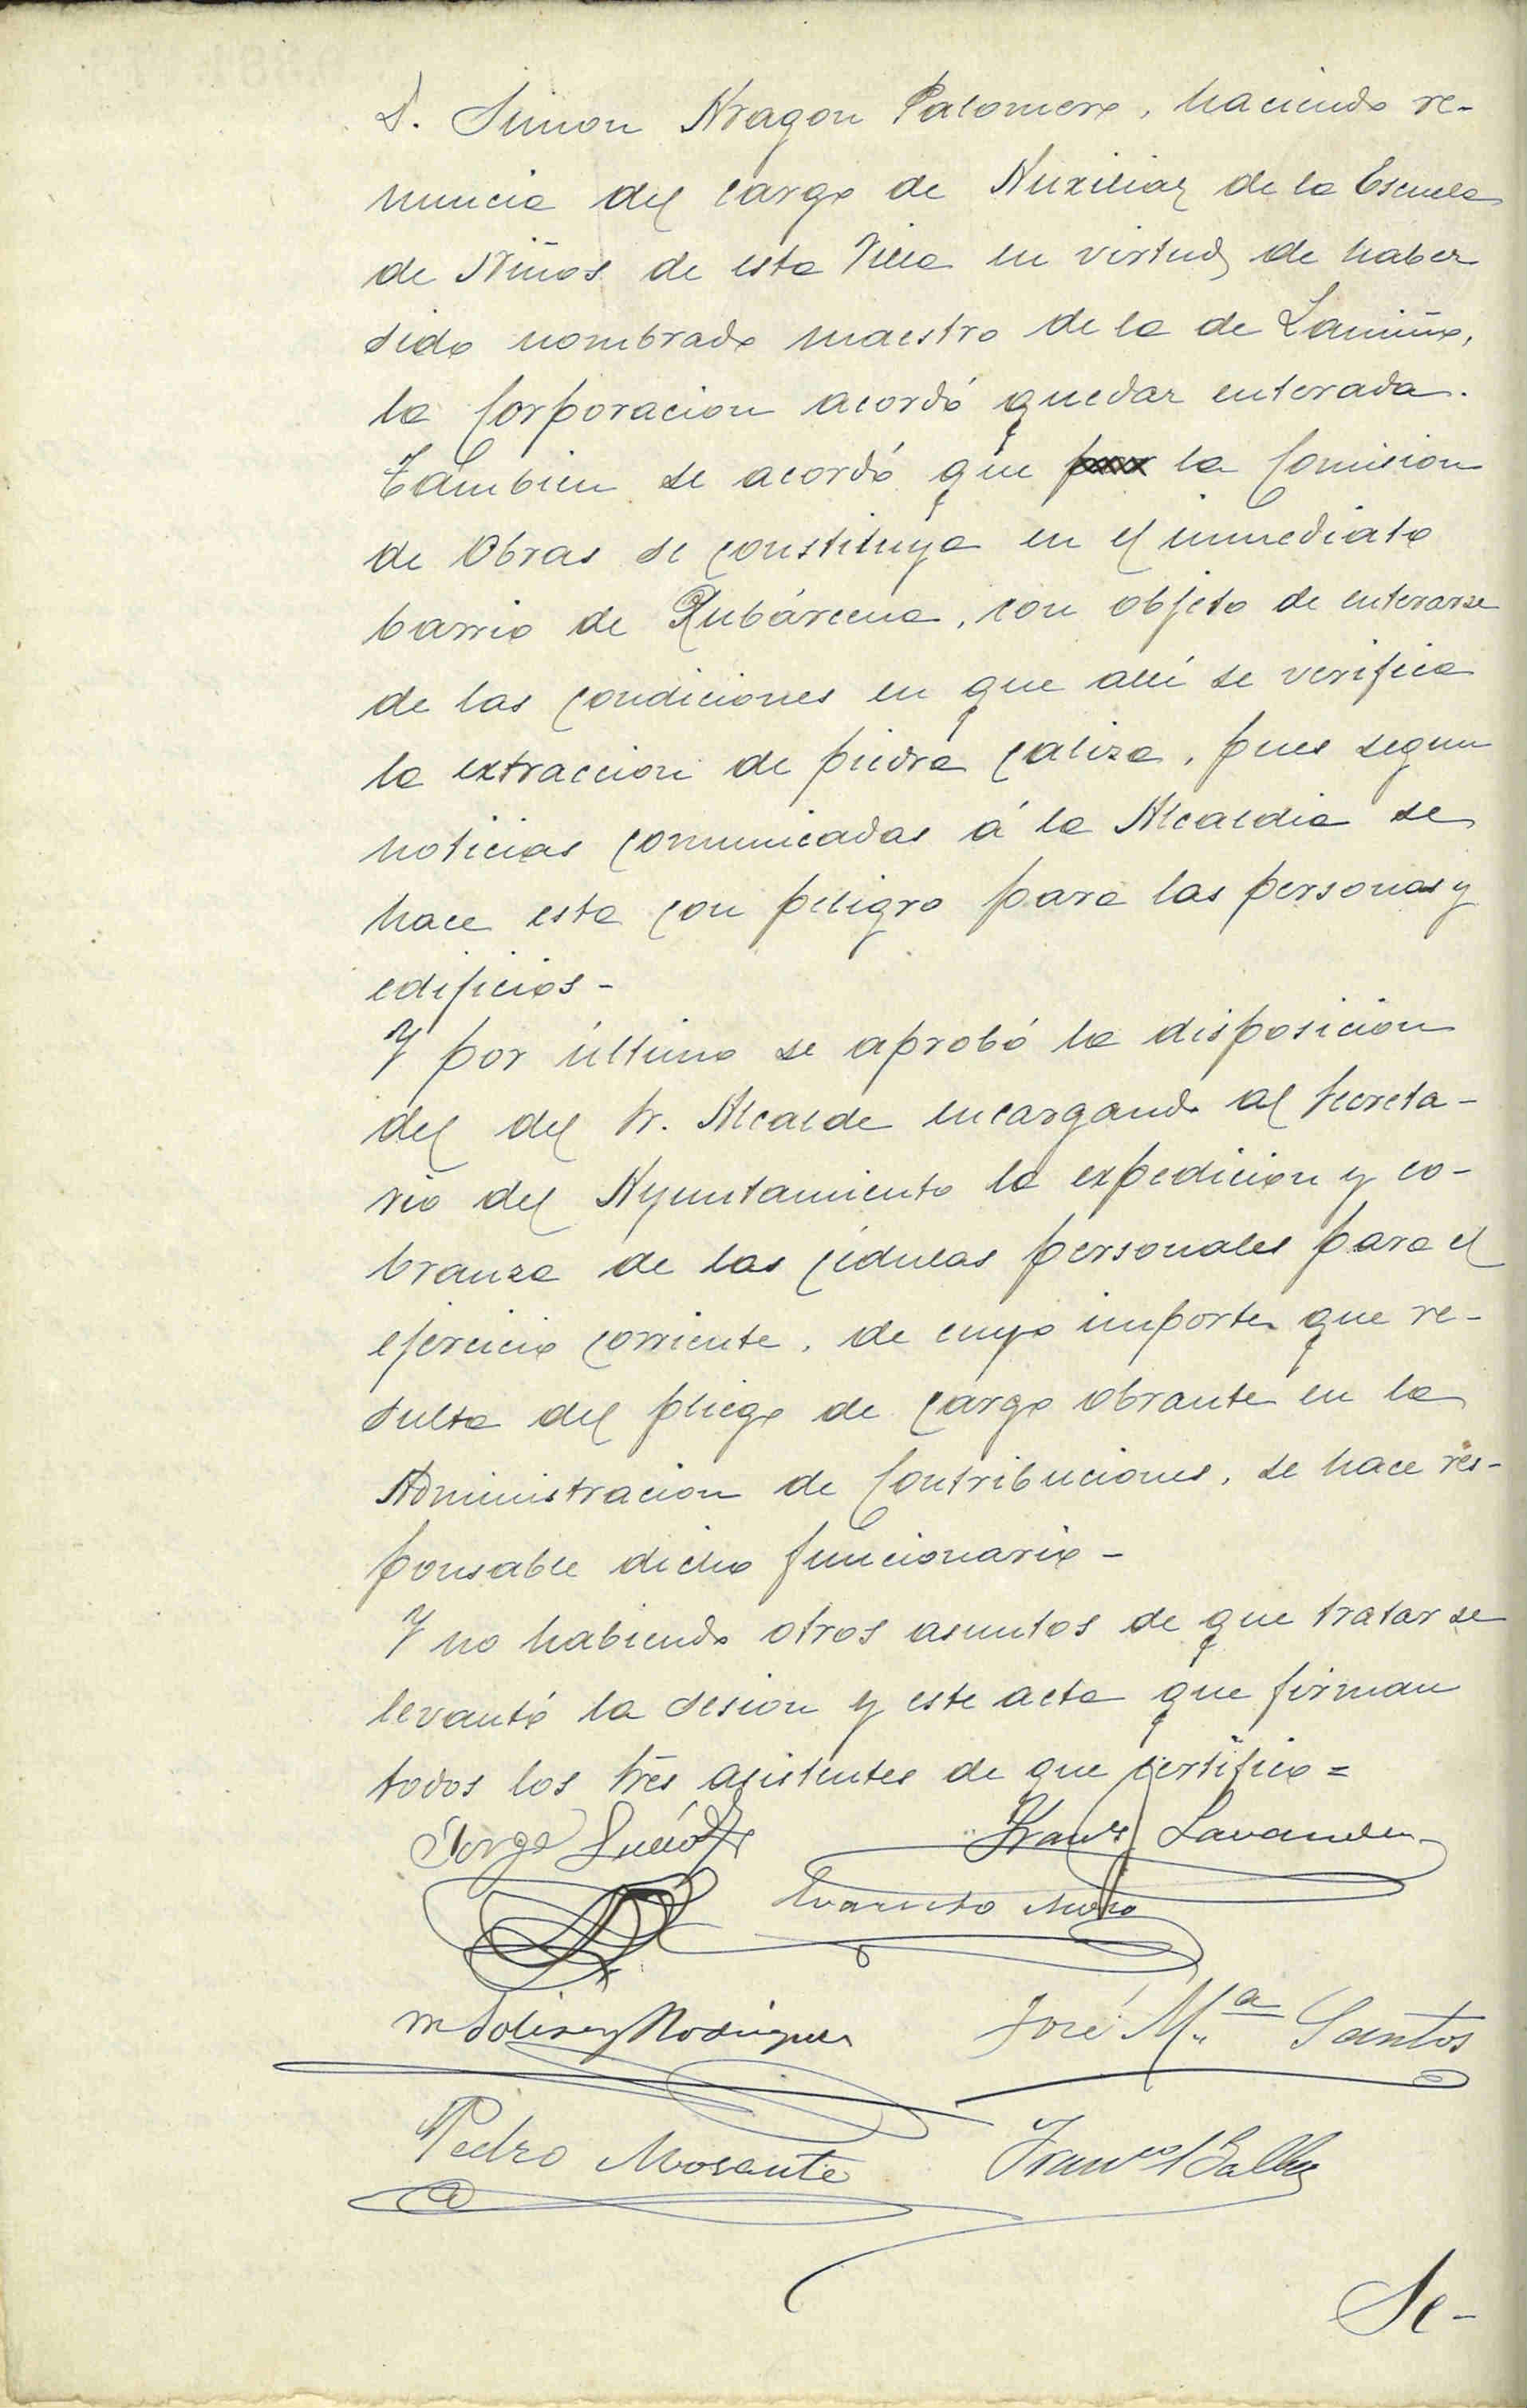 D. Simon Aragon Palomero, haciendo re-
nuncia del cargo de Auxiliar de la Escuela
de Niños de esta Villa en virtud de haber
sido nombrado maestro de la de Lamiña,
la Corporacion acordó quedar enterada.
Tambien se acordó que la Comision
de Obras se constituya en el inmediato
barrio de Rubárcena, con objeto de enterarse
de las condiciones en que allí se verifica
la extraccion de piedra caliza, pues segun
noticias comunicadas á la Alcaldia se
hace esta con peligro para las personas y
edificios -
Y por último se aprobó la disposicion
del del Sr. Alcalde encargando al Secreta-
rio del Ayuntamiento la expedicion y co-
branza de las cédulas personales para el
ejercicio corriente, de cuyo importe que re-
sulta del pliego de cargo obrante en la
Administracion de Contribuciones, se hace res-
ponsable dicho funcionario -
Y no habiendo otros asuntos de que tratar se
levantó la sesion y este acta que firman
todos los Sres asistentes de que certifico =
Jorge
Evaristo
José M.ª Santos
Pedro Morante
Se-